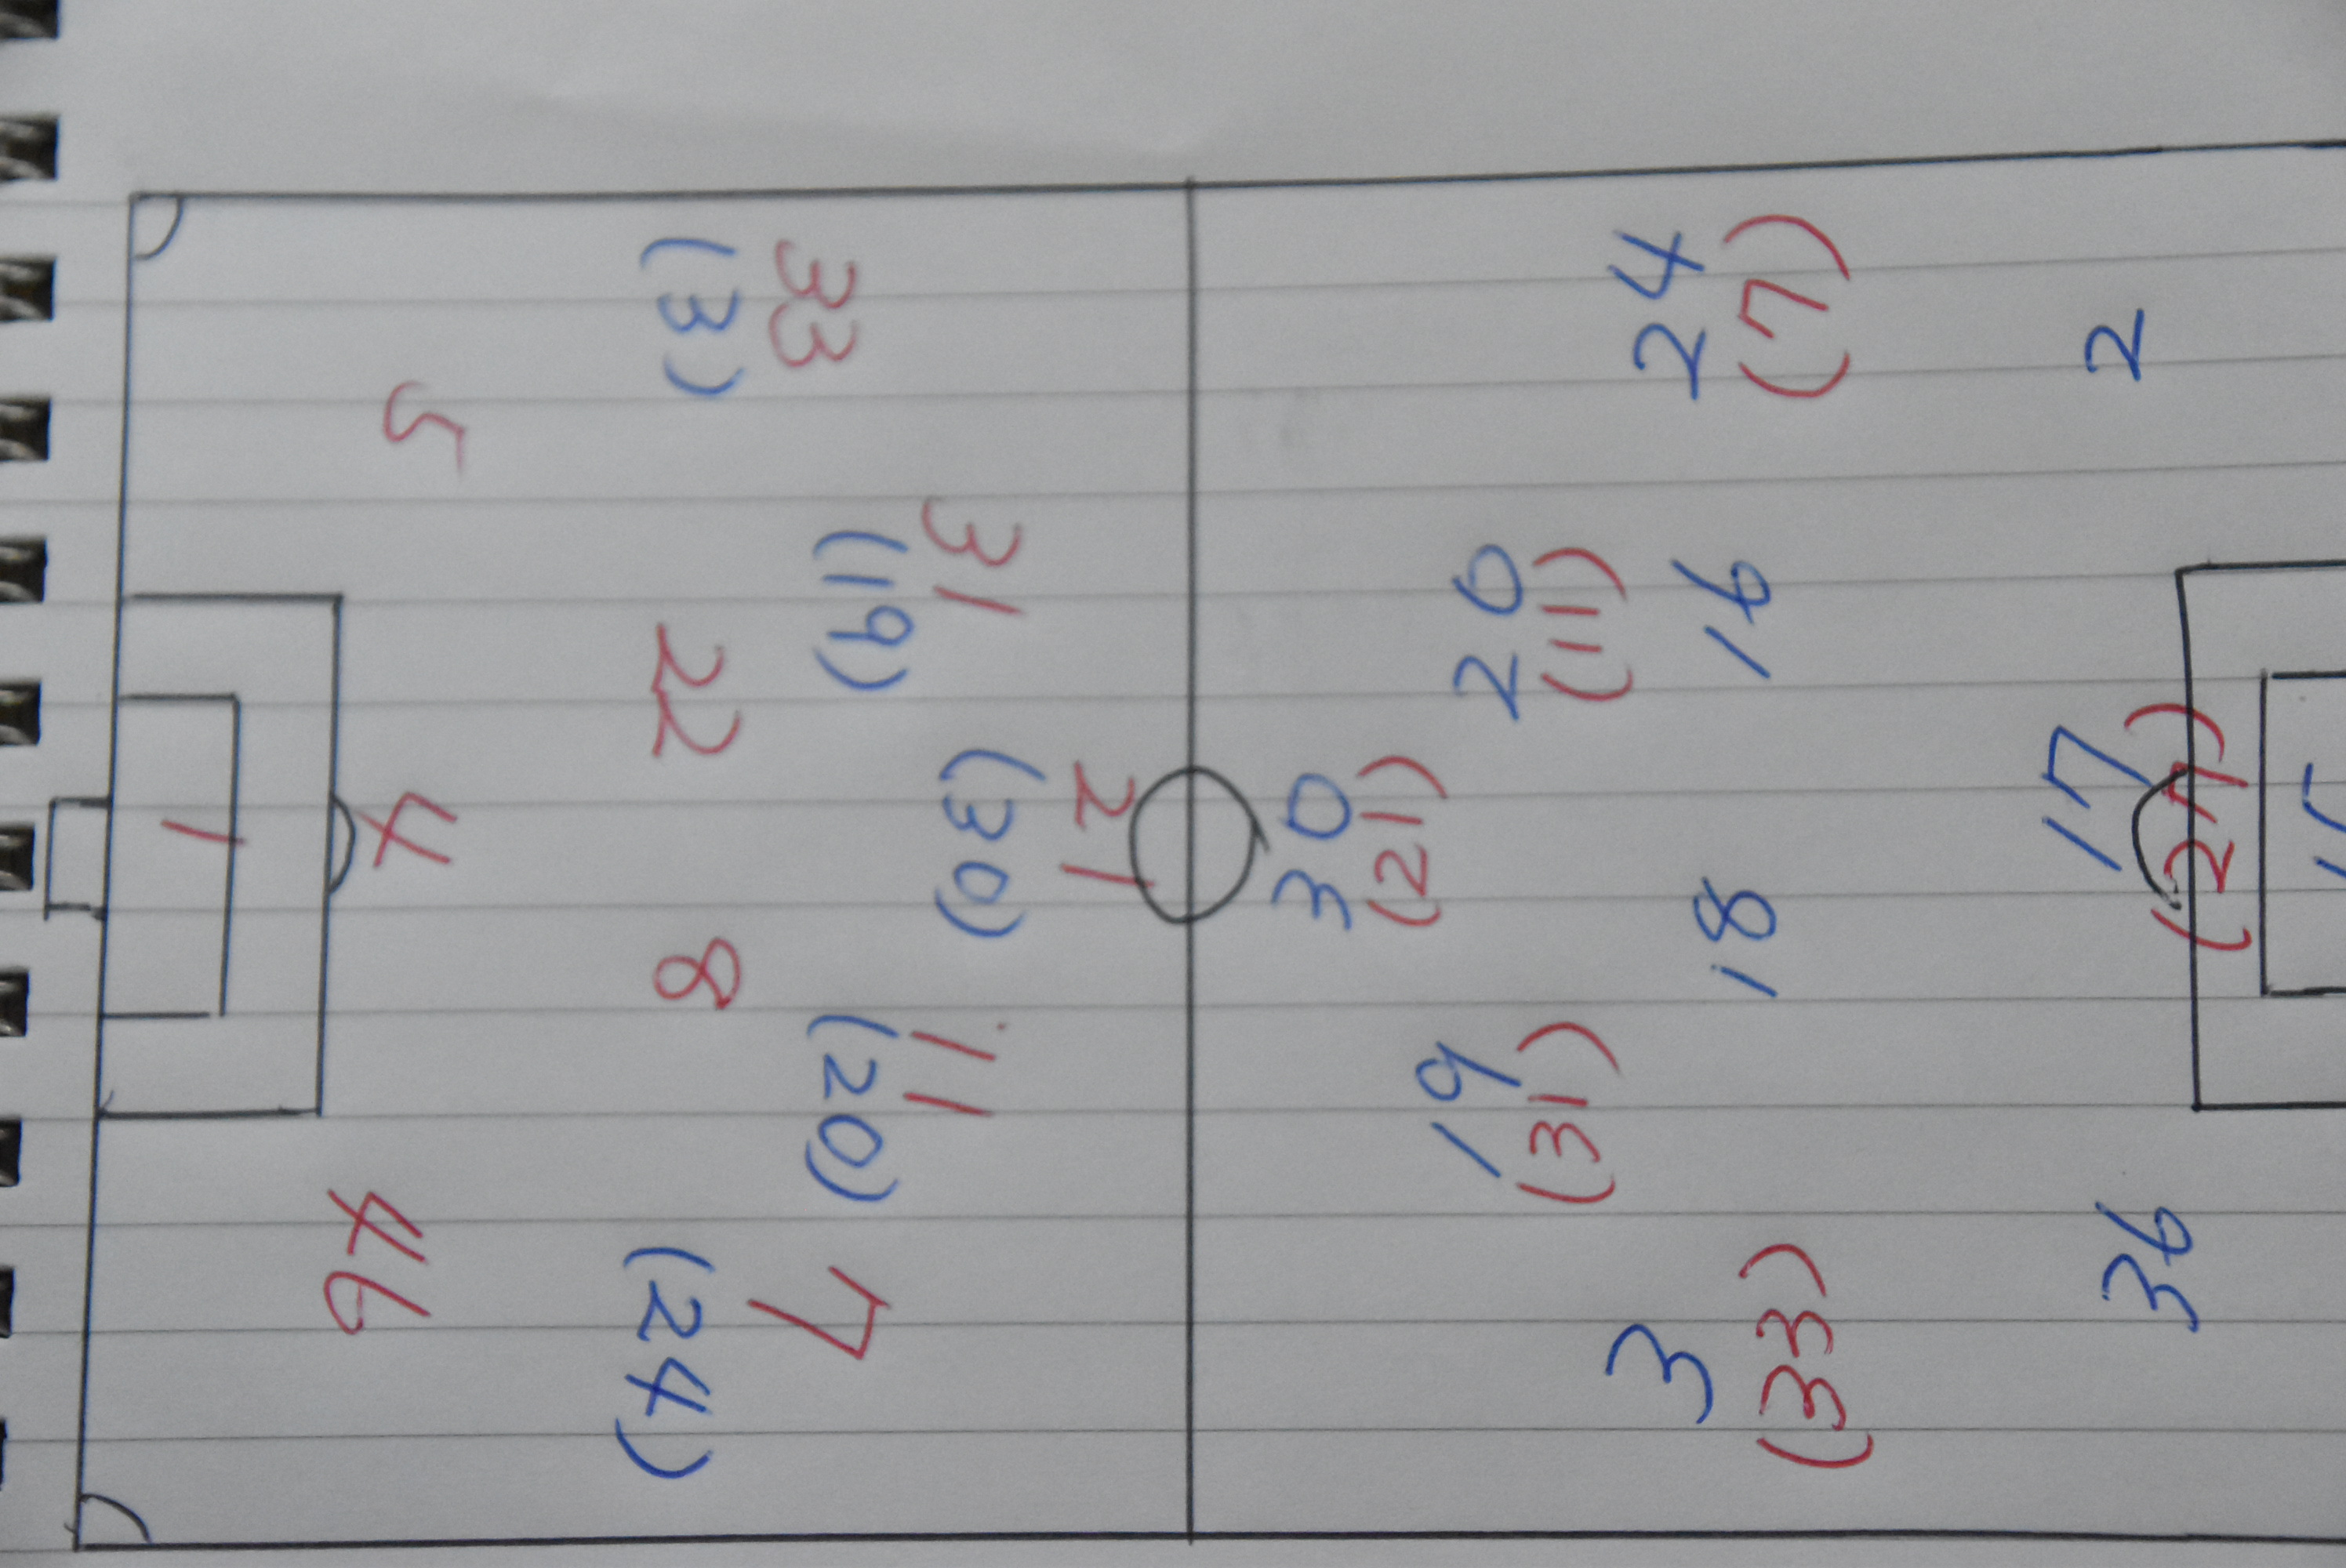 21
(30)
31
(19)
11
(20)
33
(3)
7
(24)
22
8
5
4
46
1
30
(21)
19
(31)
20
(11)
3
(33)
24
(7)
18
16
17
(27)
36
2